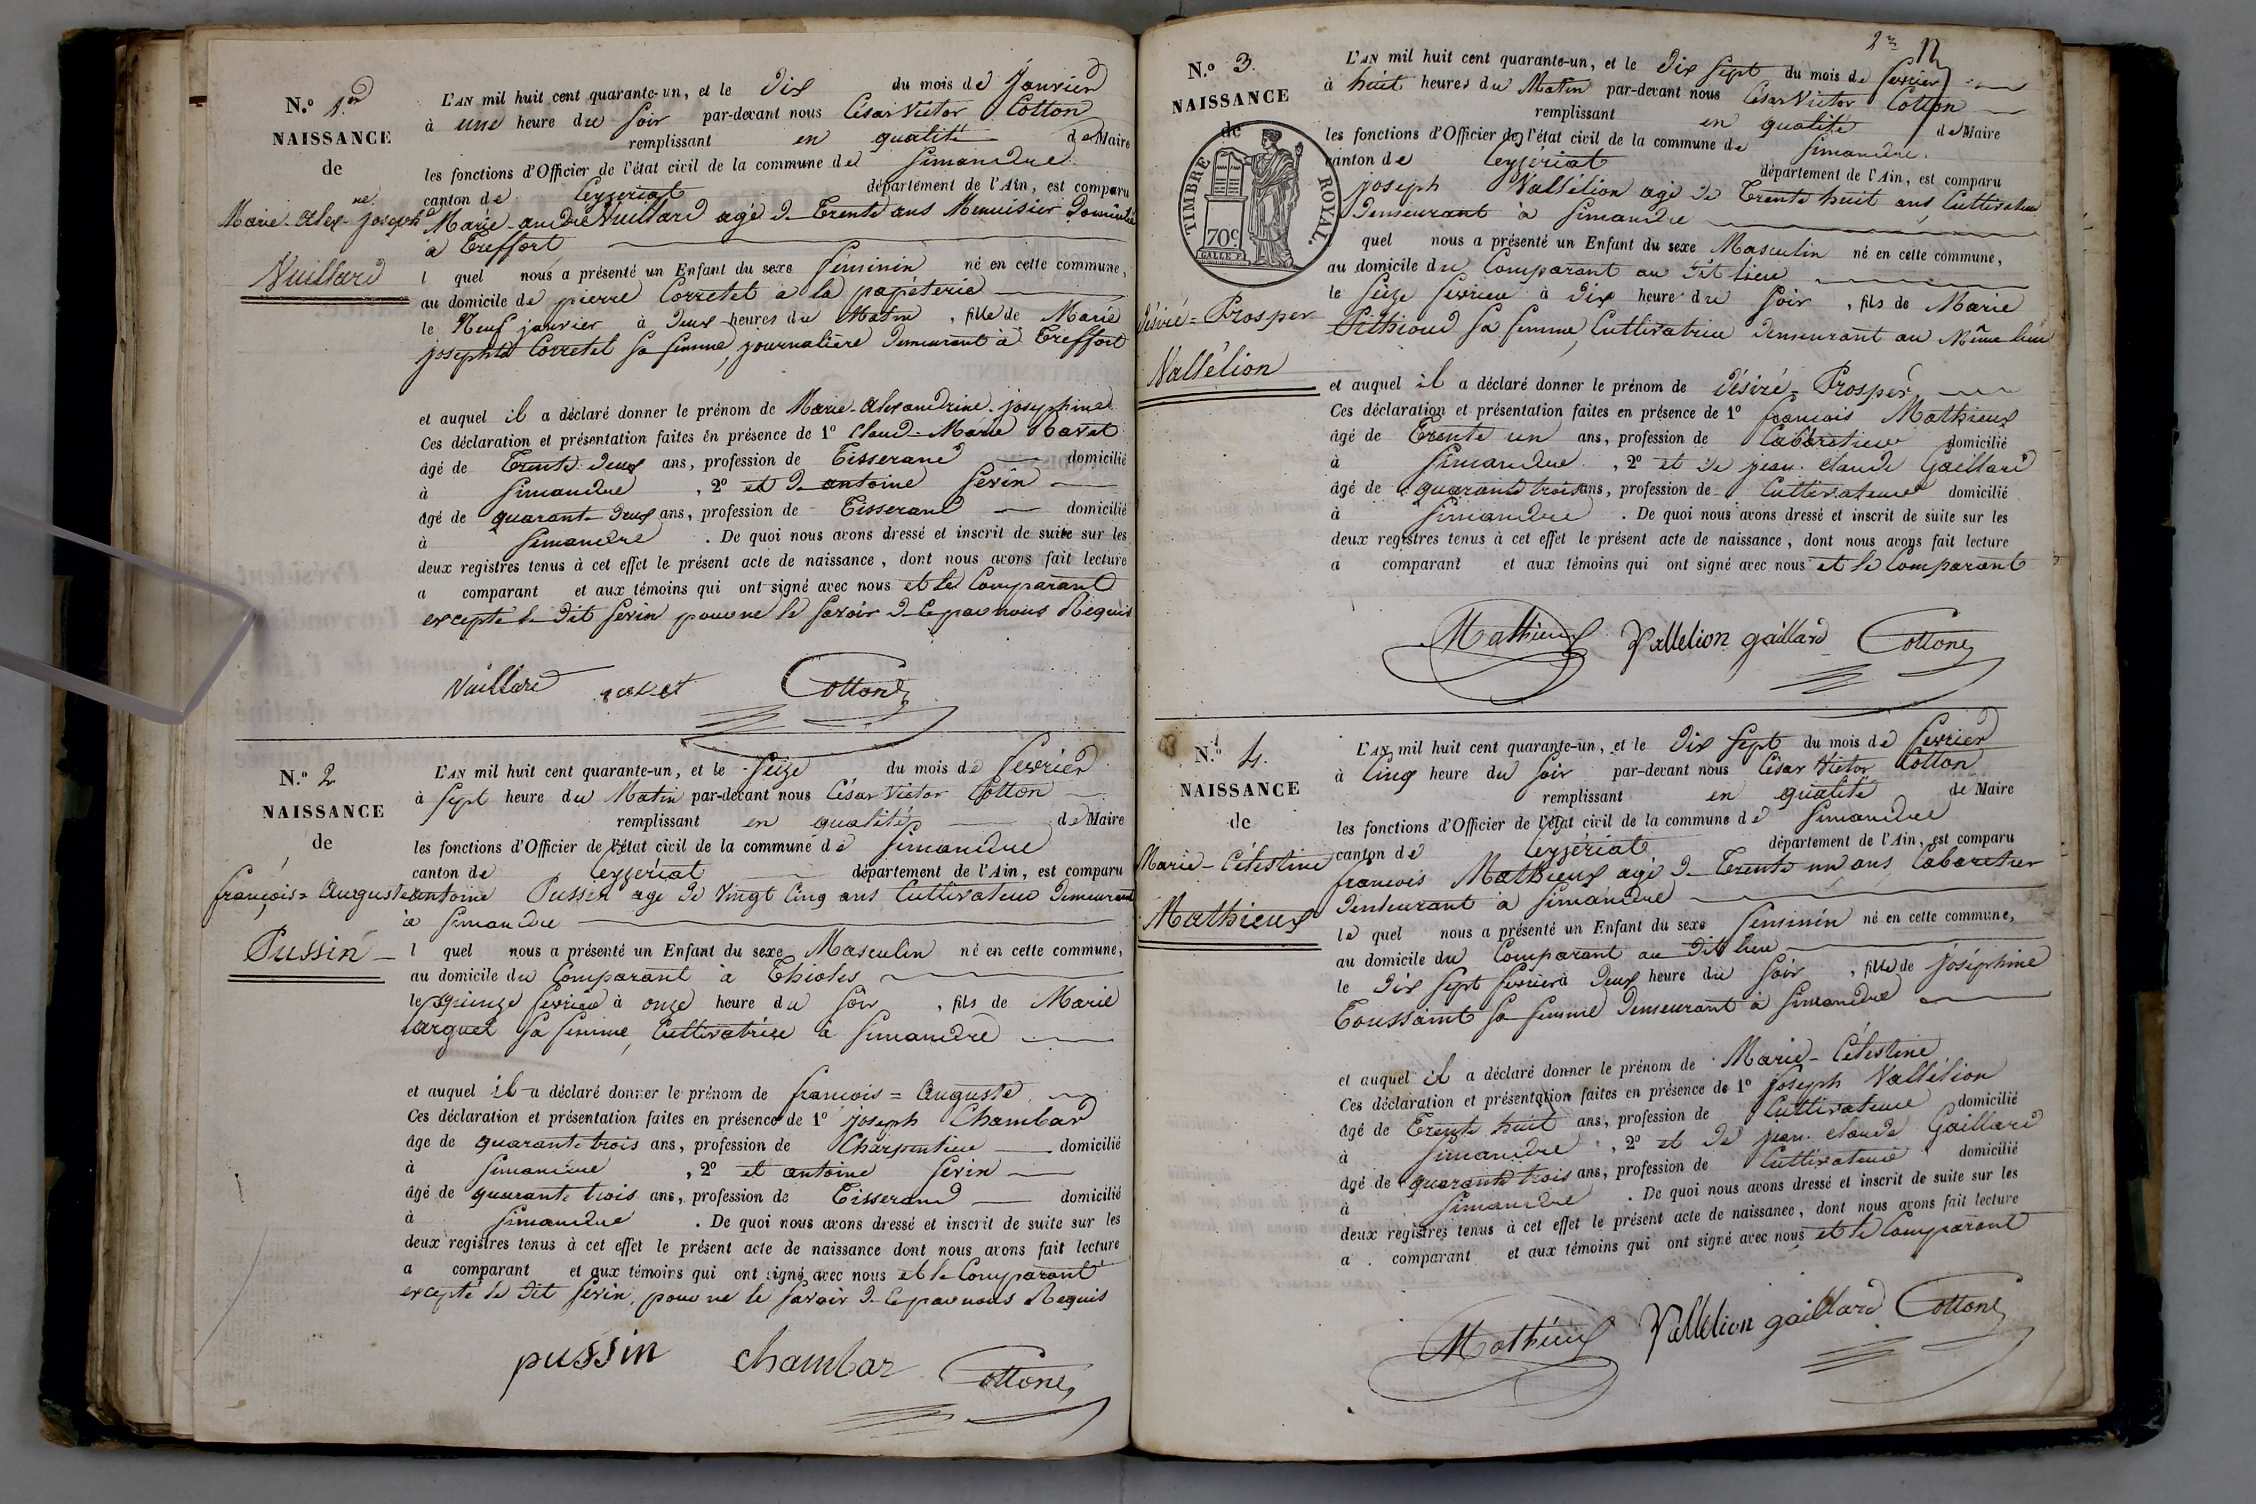 N.º 1.er
NAISSANCE
de
Marie-Alex.ne joseph.e
Vuillard
L'AN mil huit cent quarante-un, et le Dix du mois de Janvier
à une heure du soir par-devant nous César Victor Cotton
remplissant en qualité de Maire
les fonctions d'Officier de l'état civil de la commune de Simandre
canton de Ceyzeriat département de l'Ain, est comparu
Marie-andre Vuillard agé de Trente ans Menuisier Domicilié
a Treffort
l quel nous a présenté un Enfant du sexe féminin né en cette commune,
au domicile de pierre Corretel a la papeterie
le Neuf janvier à Deux heures du Matin, fille de Marie
josephte Corretel sa femme, journalière Demeurant à Treffort
et auquel il a déclaré donner le prénom de Marie-Alexandrine-josephine
Ces déclaration et présentation faites en présence de 1º Claud-Marie Ravat
âgé de Trente Deux ans, profession de Tisserand domicilié
à Simandre, 2º et De antoine Sevin
âgé de quarante Deux ans, profession de Tisserand domicilié
à Simandre. De quoi nous avons dressé et inscrit de suite sur les
deux registres tenus à cet effet le présent acte de naissance, dont nous avons fait lecture
a comparant et aux témoins qui ont signé avec nous et le Comparant
excepté le Dit Sevin pour ne le savoir De ce par nous Requis
Vuillard ravat Cotton
N.º 2
NAISSANCE
de
françois=Auguste
Pussin
L'AN mil huit cent quarante-un, et le Seize du mois de fevrier
à Sept heure du Matin par-devant nous César Victor Cotton
remplissant en qualité de Maire
les fonctions d'Officier de l'état civil de la commune de Simandre
canton de Ceyzériat département de l'Ain, est comparu
antoine Pussin agé de Vingt Cinq ans Cultivateur Demeurant
à Simandre
l quel nous a présenté un Enfant du sexe Masculin né en cette commune,
au domicile du Comparant à Thioles
le quinze fevrier à onze heure du soir, fils de Marie
Larguet sa femme, Cultivatrice à Simandre
et auquel il a déclaré donner le prénom de francois=Auguste
Ces déclaration et présentation faites en présence de 1º joseph Chambar
âge de quarante trois ans, profession de Charpentier domicilié
à Simandre, 2º et antoine Sevin
âgé de quarante trois ans, profession de Tisserand domicilié
à Simandre. De quoi nous avons dressé et inscrit de suite sur les
deux registres tenus à cet effet le présent acte de naissance dont nous avons fait lecture
a comparant et aux témoins qui ont signé avec nous et le Comparant
excepté le Dit Sevin, pour ne le savoir De ce par nous Requis
pussin chambar Cotton
2
N.º 3.
NAISSANCE
de
TIMBRE ROYAL.
70c
Désiré=Prosper
Vallélion
L'AN mil huit cent quarante-un, et le Dix Sept du mois de fevrier
à huit heures du Matin par-devant nous César Victor Cotton
remplissant en qualité de Maire
les fonctions d'Officier de l'état civil de la commune de Simandre.
canton de Ceyzeriat département de l'Ain, est comparu
joseph Vallélion agé de Trente huit ans Cultivateur
Demeurant à Simandre
quel nous a présenté un Enfant du sexe Masculin né en cette commune,
au domicile du Comparant au Dit lieu
le Seize fevrier à Dix heure du soir, fils de Marie
Pithioud sa femme, Cultivatrice Demeurant au Même lieu
et auquel il a déclaré donner le prénom de Désiré=Prosper
Ces déclaration et présentation faites en présence de 1º francois Mathieux
âgé de Trente un ans, profession de Cabaretier domicilié
à Simandre, 2º et De jean-claude Gaillard
âgé de quarante trois ans, profession de Cultivateur domicilié
à Simandre. De quoi nous avons dressé et inscrit de suite sur les
deux registres tenus à cet effet le présent acte de naissance, dont nous avons fait lecture
a comparant et aux témoins qui ont signé avec nous et le Comparant
Mathieux Vallelion gaillard Cotton
N.º 4.
NAISSANCE
de
Marie-Célestine
Mathieux
L'AN mil huit cent quarante-un, et le Dix Sept du mois de fevrier
à Cinq heure du soir par-devant nous César Victor Cotton
remplissant en qualité de Maire
les fonctions d'Officier de l'état civil de la commune de Simandre
canton de Ceyzériat département de l'Ain, est comparu
francois Mathieux agé De Trente un ans Cabaretier
Demeurant à Simandre
le quel nous a présenté un Enfant du sexe feminin né en cette commune,
au domicile du Comparant au Dit lieu
le Dix Sept fevrier à Deux heure du soir, fille de Joséphine
Toussaint sa femme Demeurant à Simandre
et auquel il a déclaré donner le prénom de Marie-Célestine
Ces déclaration et présentation faites en présence de 1º Joseph Vallélion
âgé de Trente huit ans, profession de Cultivateur domicilié
à Simandre, 2º et De jean-claude Gaillard
âgé de quarante trois ans, profession de Cultivateur domicilié
à Simandre. De quoi nous avons dressé et inscrit de suite sur les
deux registres tenus à cet effet le présent acte de naissance, dont nous avons fait lecture
a comparant et aux témoins qui ont signé avec nous et le Comparant
Mathieux Vallelion gaillard Cotton